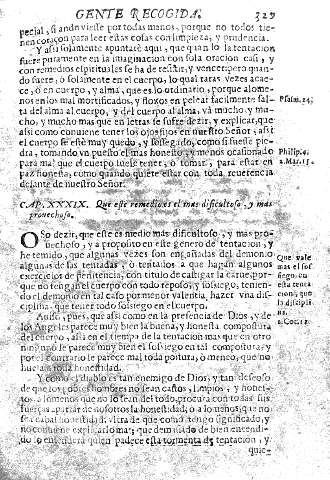 GENTE RECOGIDA. 329
pecial, si anduviesse por todas manos, porque no todos tie-
nen coraçon para leer estas cosas con limpieza, y prudencia.
Y assi solamente apuntarè aqui, que quando la tentacion
fuere puramente en la imaginacion con sola oracion casi, y
con remedios espirituales se ha de resistir, y vencer: pero quan-
do fuere, ò solamente en el cuerpo, lo qual raras vezes acae-
ce, ò en cuerpo, y alma, que es lo ordinario, porque alome-
nos en los mal mortificados, y floxos en pelear facilmente sal-
ta del alma al cuerpo, y del cuerpo al alma, và mucho, y mu-
cho, y mucho mas que en letras se sufre dezir, y explicar, que
assi como conviene tener los ojos fijos en nuestro Señor, assi
el cuerpo se estè muy quedo, y sossegado, como si fuesse pie-
dra, tomando un puesto el mas honesto, y menos ocasionado
para mal que el cuerpo suele tener, ò tomar, para estar en
paz honesta, como quando quiere estar con toda reverencia
delante de nuestro Señor.
Psalm. 24.
Philip. 4.
1. Mar. 15.
CAP. XXXIX. Que este remedio es el mas dificultoso, y mas
provechoso.
OSo dezir, que este es medio mas dificultoso, y mas pro-
vechoso, y a proposito en este genero de tentacion, y
he temido, que algunas vezes son engañados del demonio
algunas de las tentadas, ò tentados a que hagan algunos
exercicios de penitencia, con titulo de castigar la carne: por-
que no tengan el cuerpo con todo reposo, y sossiego, tenien-
do el demonio en tal caso por menor valentia, hazer una dis-
ciplina, que tener todo sossiego en el cuerpo.
Que vale
mas el sos-
siego en
esta tenta-
cion, que
la discipli-
na.
1. Cor. 12.
Aviso, pues, que assi como en la presencia de Dios, y de
los Angeles parece muy bien la buena, y honesta compostura
del cuerpo, assi en el tiempo de la tentacion mas que en otro
ninguno le parece muy bien el sossiego en tal compostura, y
por el contrario le parece mal toda postura, ò meneo, que no
huela a toda honestidad.
Y como el diablo es tan enemigo de Dios, y tan deseoso
de que los hombres no sean castos, limpios, y hones-
tos, a lomenos que no lo sean del todo, procura con todas sus
fuerças apartar de nosotros la honestidad, ò a lo menos, que no
sea cabal honestidad, quiera de que como tengo significado, y
no conviene explicarlo mas; que demasiado de bien entendi-
do lo entenderà quien padece esta tormenta de tentacion, y
quie-